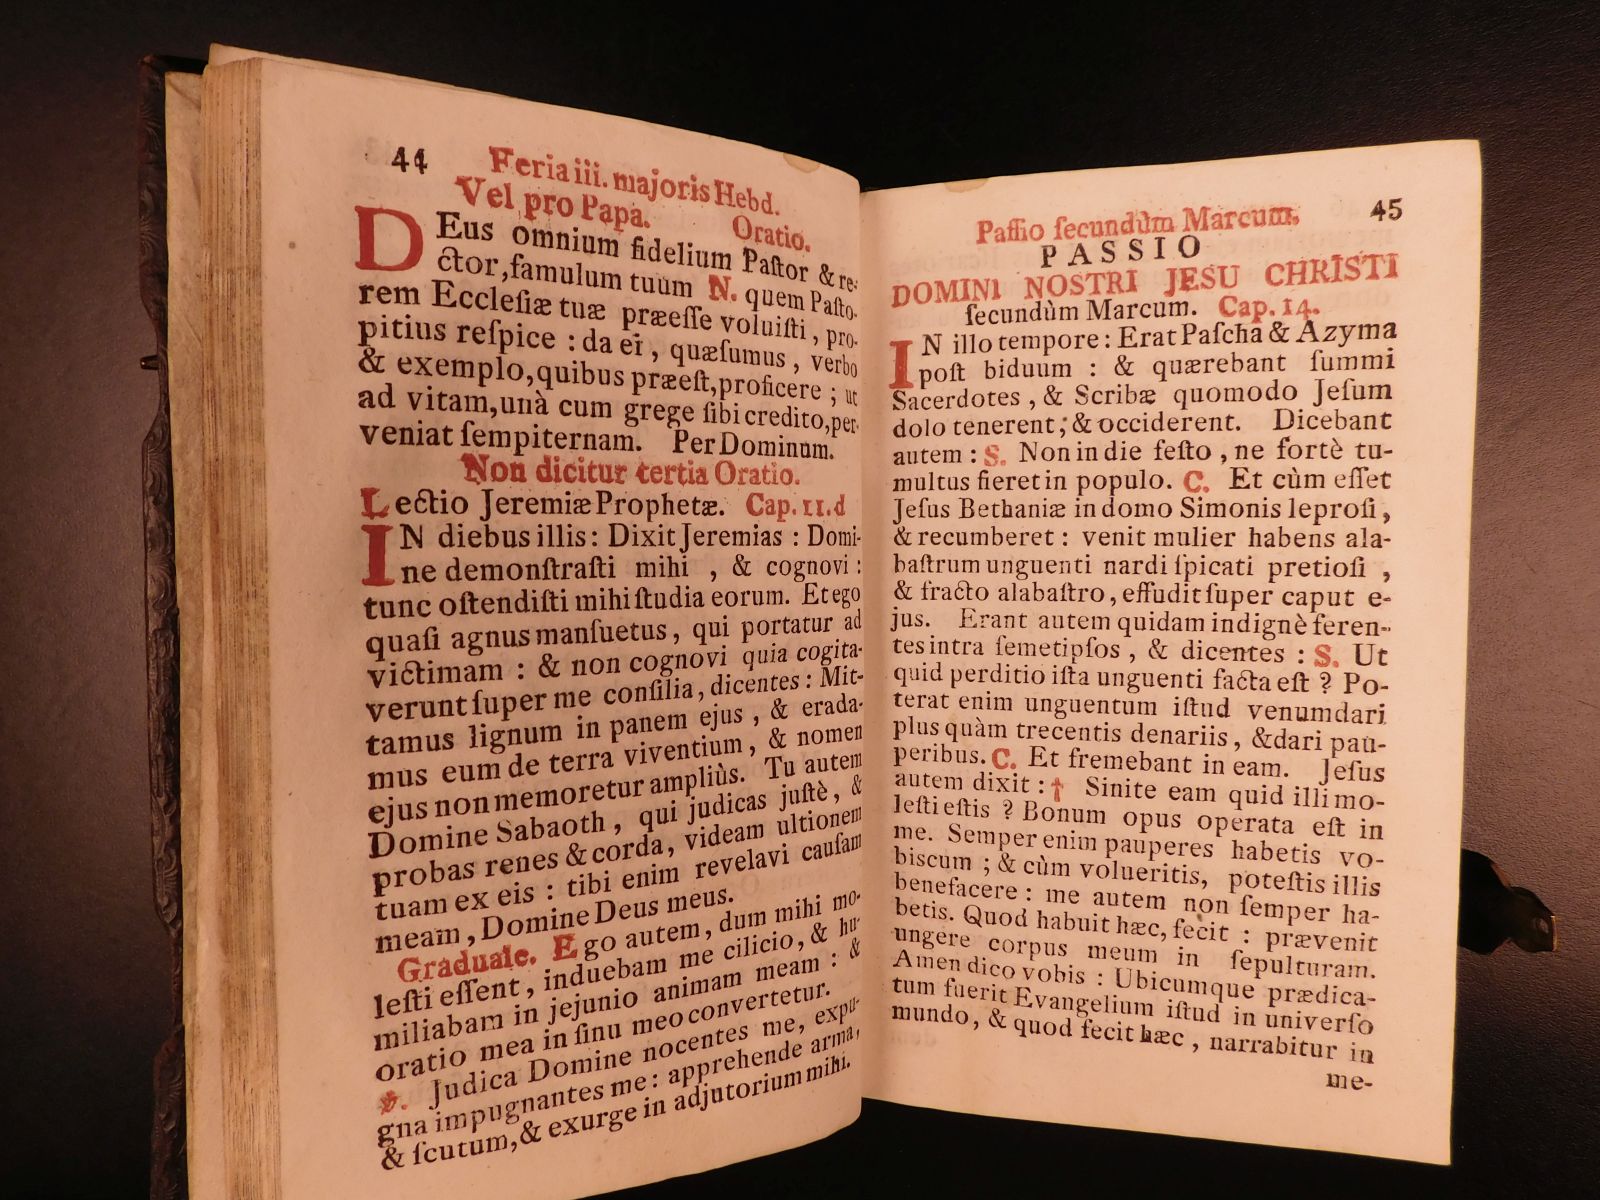 44 Feria iii. majoris Hebd.
Vel pro Papa. Oratio.
DEus omnium fidelium Paſtor & re-
ctor, famulum tuum N. quem Paſto-
rem Eccleſiæ tuæ præeſſe voluiſti, pro-
pitius reſpice : da ei, quæſumus, verbo
& exemplo, quibus præeſt, proficere ; ut
ad vitam, unà cum grege ſibi credito, per-
veniat ſempiternam. Per Dominum.
Non dicitur tertia Oratio.
Lectio Jeremiæ Prophetæ. Cap. 11. d
IN diebus illis : Dixit Jeremias : Domi-
ne demonſtraſti mihi , & cognovi :
tunc oſtendiſti mihi ſtudia eorum. Et ego
quaſi agnus manſuetus, qui portatur ad
victimam : & non cognovi quia cogita-
verunt ſuper me conſilia, dicentes : Mit-
tamus lignum in panem ejus , & erada-
mus eum de terra viventium, & nomen
ejus non memoretur ampliùs. Tu autem
Domine Sabaoth , qui judicas juſtè, &
probas renes & corda, videam ultionem
tuam ex eis : tibi enim revelavi cauſam
meam, Domine Deus meus.
Graduale. Ego autem, dum mihi mo-
leſti eſſent, induebam me cilicio, & hu-
miliabam in jejunio animam meam : &
oratio mea in ſinu meo convertetur.
℣. Judica Domine nocentes me, expu-
gna impugnantes me : apprehende arma,
& ſcutum, & exurge in adjutorium mihi.
Paſſio ſecundùm Marcum. 45
PASSIO
DOMINI NOSTRI JESU CHRISTI
ſecundùm Marcum. Cap. 14.
IN illo tempore : Erat Paſcha & Azyma
poſt biduum : & quærebant ſummi
Sacerdotes , & Scribæ quomodo Jeſum
dolo tenerent ; & occiderent. Dicebant
autem : S. Non in die feſto , ne fortè tu-
multus fieret in populo. C. Et cùm eſſet
Jeſus Bethaniæ in domo Simonis leproſi ,
& recumberet : venit mulier habens ala-
baſtrum unguenti nardi ſpicati pretioſi ,
& fracto alabaſtro, effudit ſuper caput e-
jus. Erant autem quidam indignè feren-
tes intra ſemetipſos , & dicentes : S. Ut
quid perditio iſta unguenti facta eſt ? Po-
terat enim unguentum iſtud venumdari
plus quàm trecentis denariis, & dari pau-
peribus. C. Et fremebant in eam. Jeſus
autem dixit : † Sinite eam quid illi mo-
leſti eſtis ? Bonum opus operata eſt in
me. Semper enim pauperes habetis vo-
biscum ; & cùm volueritis, poteſtis illis
benefacere : me autem non ſemper ha-
betis. Quod habuit hæc, fecit : prævenit
ungere corpus meum in ſepulturam.
Amen dico vobis : Ubicumque prædica-
tum fuerit Evangelium iſtud in univerſo
mundo, & quod fecit hæc , narrabitur in
me-